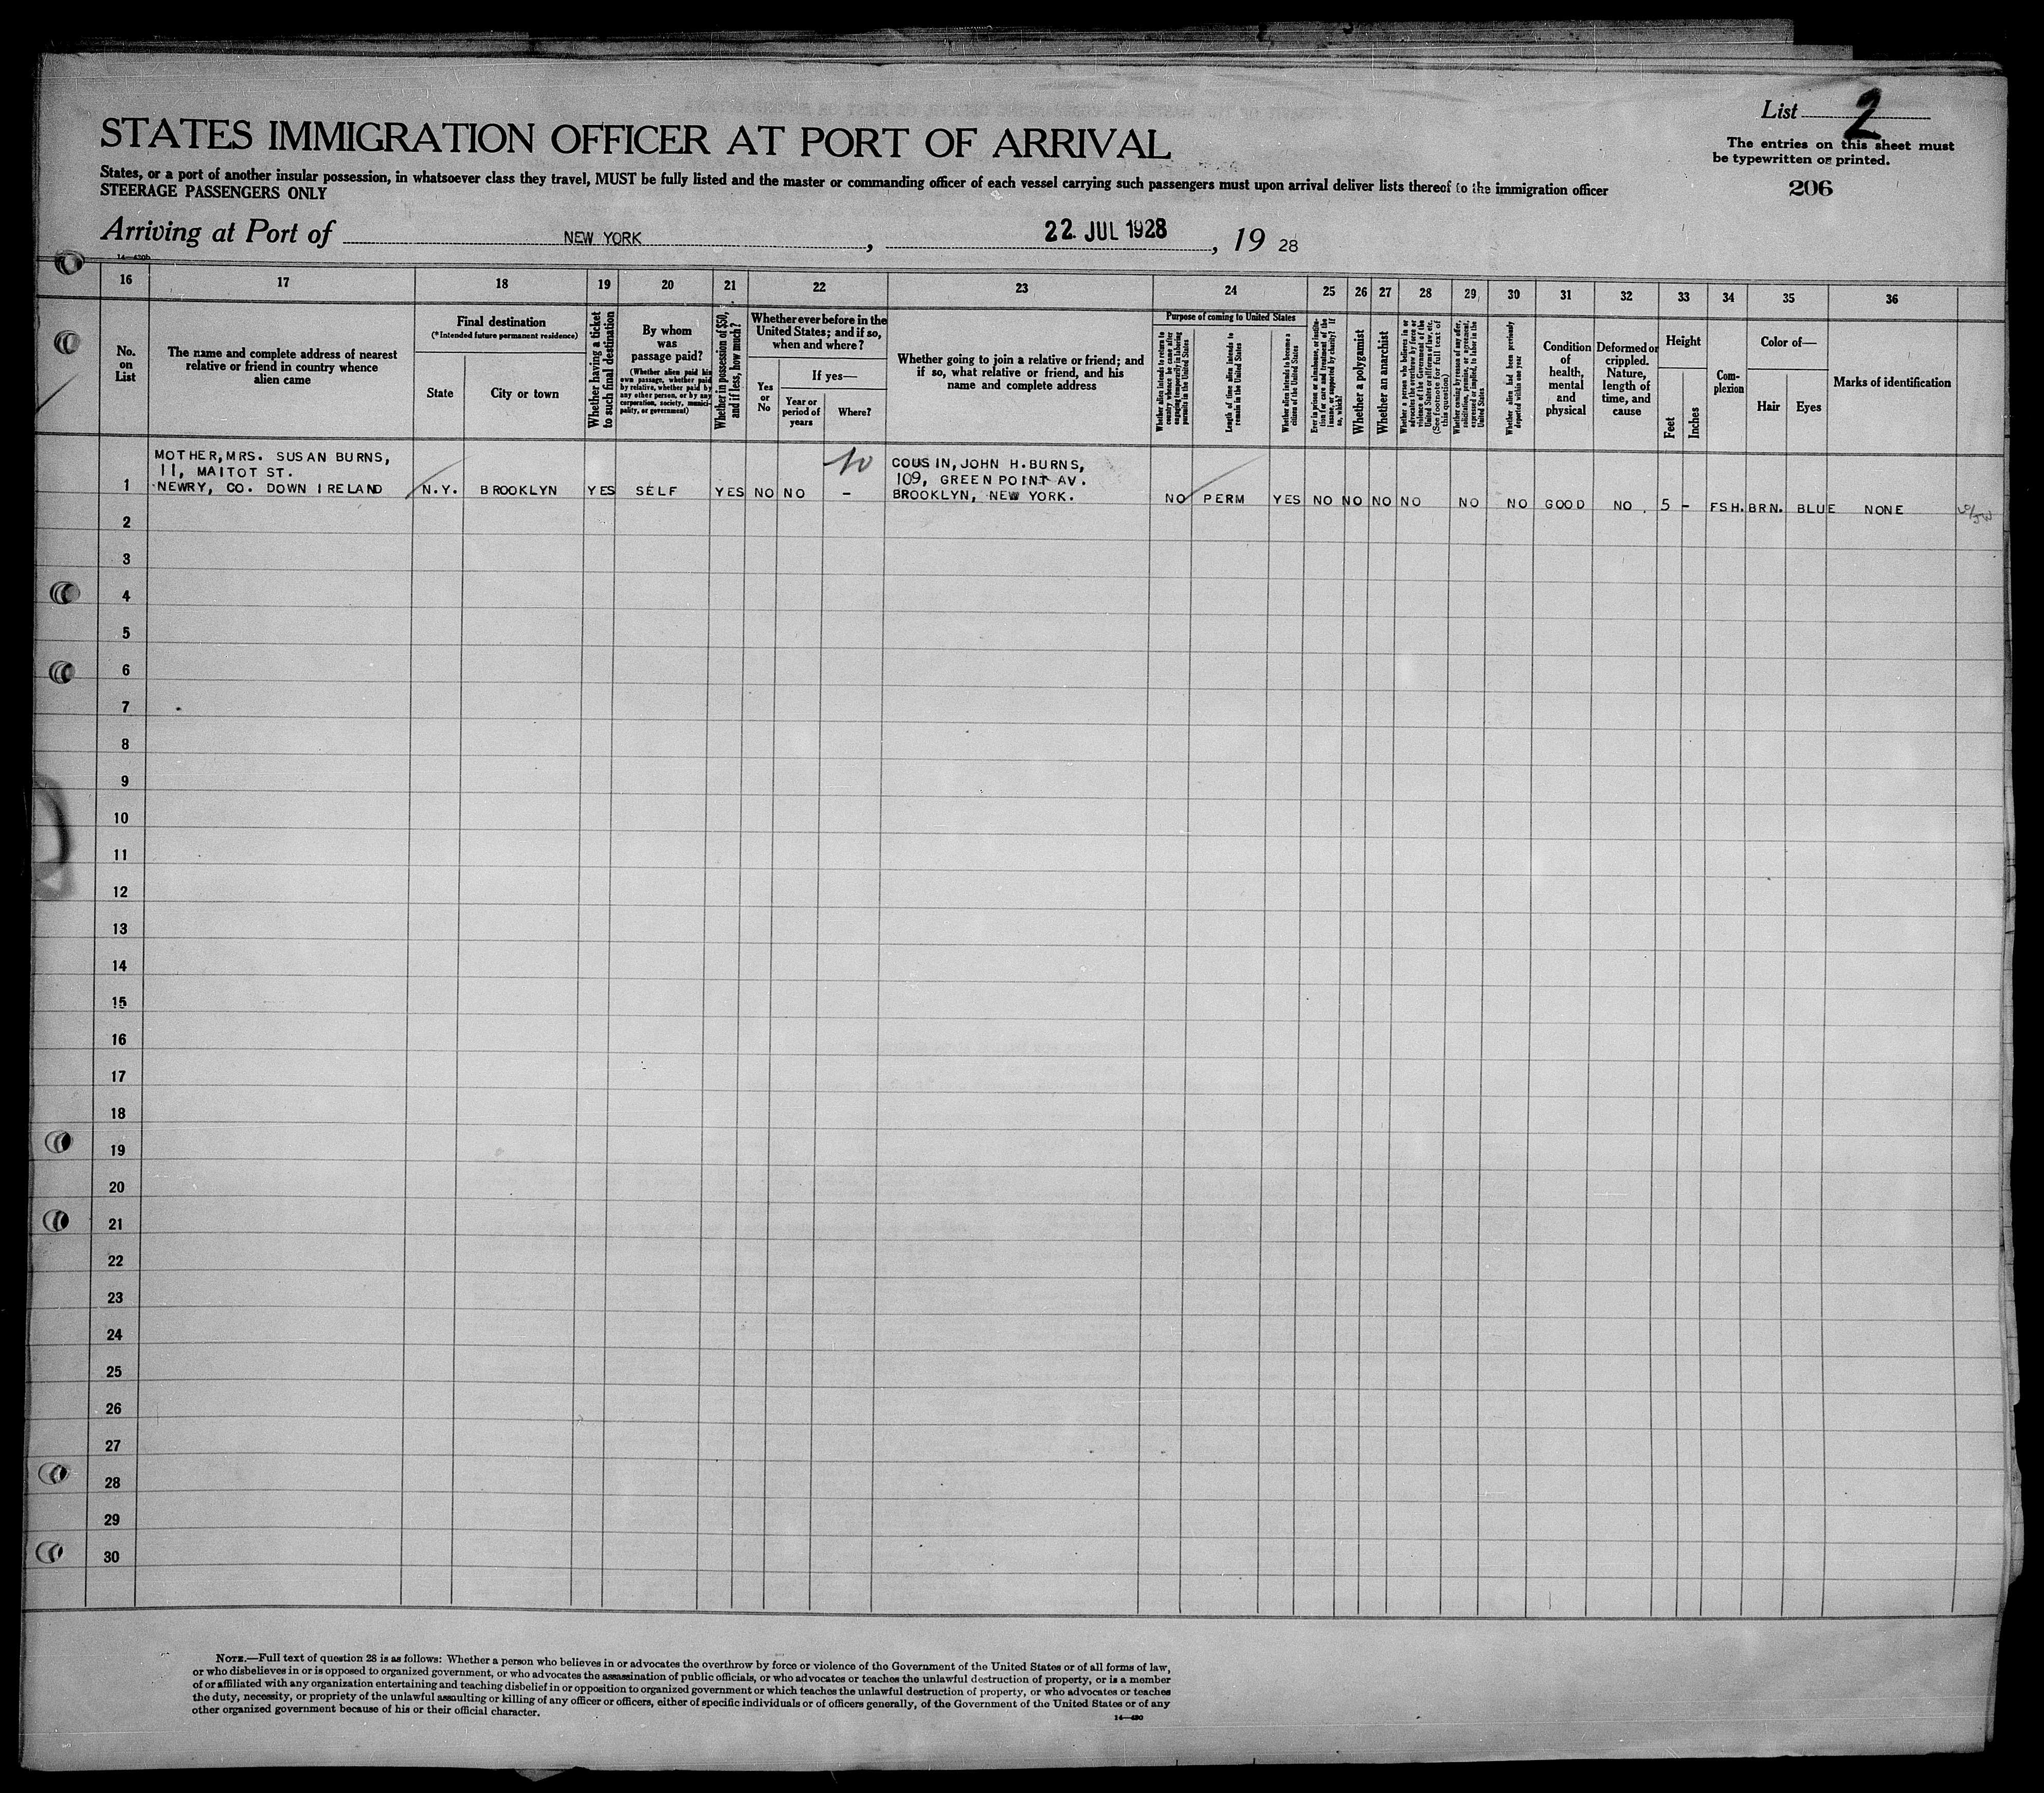 List 2
The entries on this sheet must
be typewritten or printed.
206
STATES IMMIGRATION OFFICER AT PORT OF ARRIVAL
States, or a port of another insular possession, in whatsoever class they travel, MUST be fully listed and the master or commanding officer of each vessel carrying such passengers must upon arrival deliver lists thereof to the immigration officer
STEERAGE PASSENGERS ONLY
Arriving at Port of NEW YORK, 22 JUL 1928, 19 28
14—430b
16 17 18 19 20 21 22 23 24 25 26 27 28 29 30 31 32 33 34 35 36
No.
on
List
The name and complete address of nearest
relative or friend in country whence
alien came
Final destination
(*Intended future permanent residence)
State
City or town
Whether having a ticket
to such final destination
By whom
was
passage paid?
(Whether alien paid his
own passage, whether paid
by relative, whether paid by
any other person, or by any
corporation, society, munici-
pality, or government)
Whether in possession of $50,
and if less, how much?
Whether ever before in the
United States; and if so,
when and where?
Yes
or
No
If yes—
Year or
period of
years
Where?
Whether going to join a relative or friend; and
if so, what relative or friend, and his
name and complete address
Purpose of coming to United States
Whether alien intends to return to
country whence he came after
engaging temporarily in laboring
pursuits in the United States
Length of time alien intends to
remain in the United States
Whether alien intends to become a
citizen of the United States
Ever in prison or almshouse, or institu-
tion for care and treatment of the
insane, or supported by charity? If
so, which?
Whether a polygamist
Whether an anarchist
Whether a person who believes in or
advocates the overthrow by force or
violence of the Government of the
United States or all forms of law, etc.
(See footnote for full text of
this question)
Whether coming by reason of any offer,
solicitation, promise, or agreement,
expressed or implied, to labor in the
United States
Whether alien had been previously
deported within one year
Condition
of
health,
mental
and
physical
Deformed or
crippled.
Nature,
length of
time, and
cause
Height
Feet
Inches
Com-
plexion
Color of—
Hair
Eyes
Marks of identification
MOTHER, MRS. SUSAN BURNS,
11, MAITOT ST.
NEWRY, CO. DOWN IRELAND
1
N.Y. BROOKLYN YES SELF YES NO NO –
10
COUSIN, JOHN H. BURNS,
109, GREEN POINT AV.
BROOKLYN, NEW YORK.
NO PERM YES NO NO NO NO NO NO GOOD NO. 5 – FSH. BRN. BLUE NONE
2
3
4
5
6
7
8
9
10
11
12
13
14
15
16
17
18
19
20
21
22
23
24
25
26
27
28
29
30
NOTE.—Full text of question 28 is as follows: Whether a person who believes in or advocates the overthrow by force or violence of the Government of the United States or of all forms of law,
or who disbelieves in or is opposed to organized government, or who advocates the assassination of public officials, or who advocates or teaches the unlawful destruction of property, or is a member
of or affiliated with any organization entertaining and teaching disbelief in or opposition to organized government or which teaches the unlawful destruction of property, or who advocates or teaches
the duty, necessity, or propriety of the unlawful assaulting or killing of any officer or officers, either of specific individuals or of officers generally, of the Government of the United States or of any
other organized government because of his or their official character.
14—430